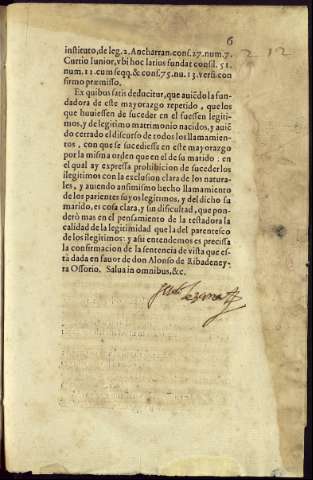 6
212
instituto, de leg. 2. Ancharran. cons. 27. num. 7.
Curtio Iunior, vbi hoc latius fundat consil. 51.
num. 11. cum seqq. & cons. 75. nu. 13. vers. con
firmo præmisso.
Ex quibus satis deducitur, que auiẽdo la fun-
dadora de este mayorazgo repetido, que los
que huuiessen de suceder en el fuessen legiti-
mos, y de legitimo matrimonio nacidos, y auiẽ
do cerrado el discurso de todos los llamamien-
tos, con que se sucediesse en este mayorazgo
por la misma orden que en el de su marido: en
el qual ay expressa prohibicion de suceder los
ilegitimos con la exclusion clara de los natura-
les, y auiendo ansimismo hecho llamamiento
de los parientes suyos legitimos, y del dicho su
marido, es cosa clara, y sin dificultad, que pon-
derò mas en el pensamiento de la testadora la
calidad de la legitimidad que la del parentesco
de los ilegitimos: y assi entendemos es precissa
la confirmacion de la sentencia de vista que es-
tà dada en fauor de don Alonso de Ribadeney-
ra Ossorio. Salua in omnibus, &c.